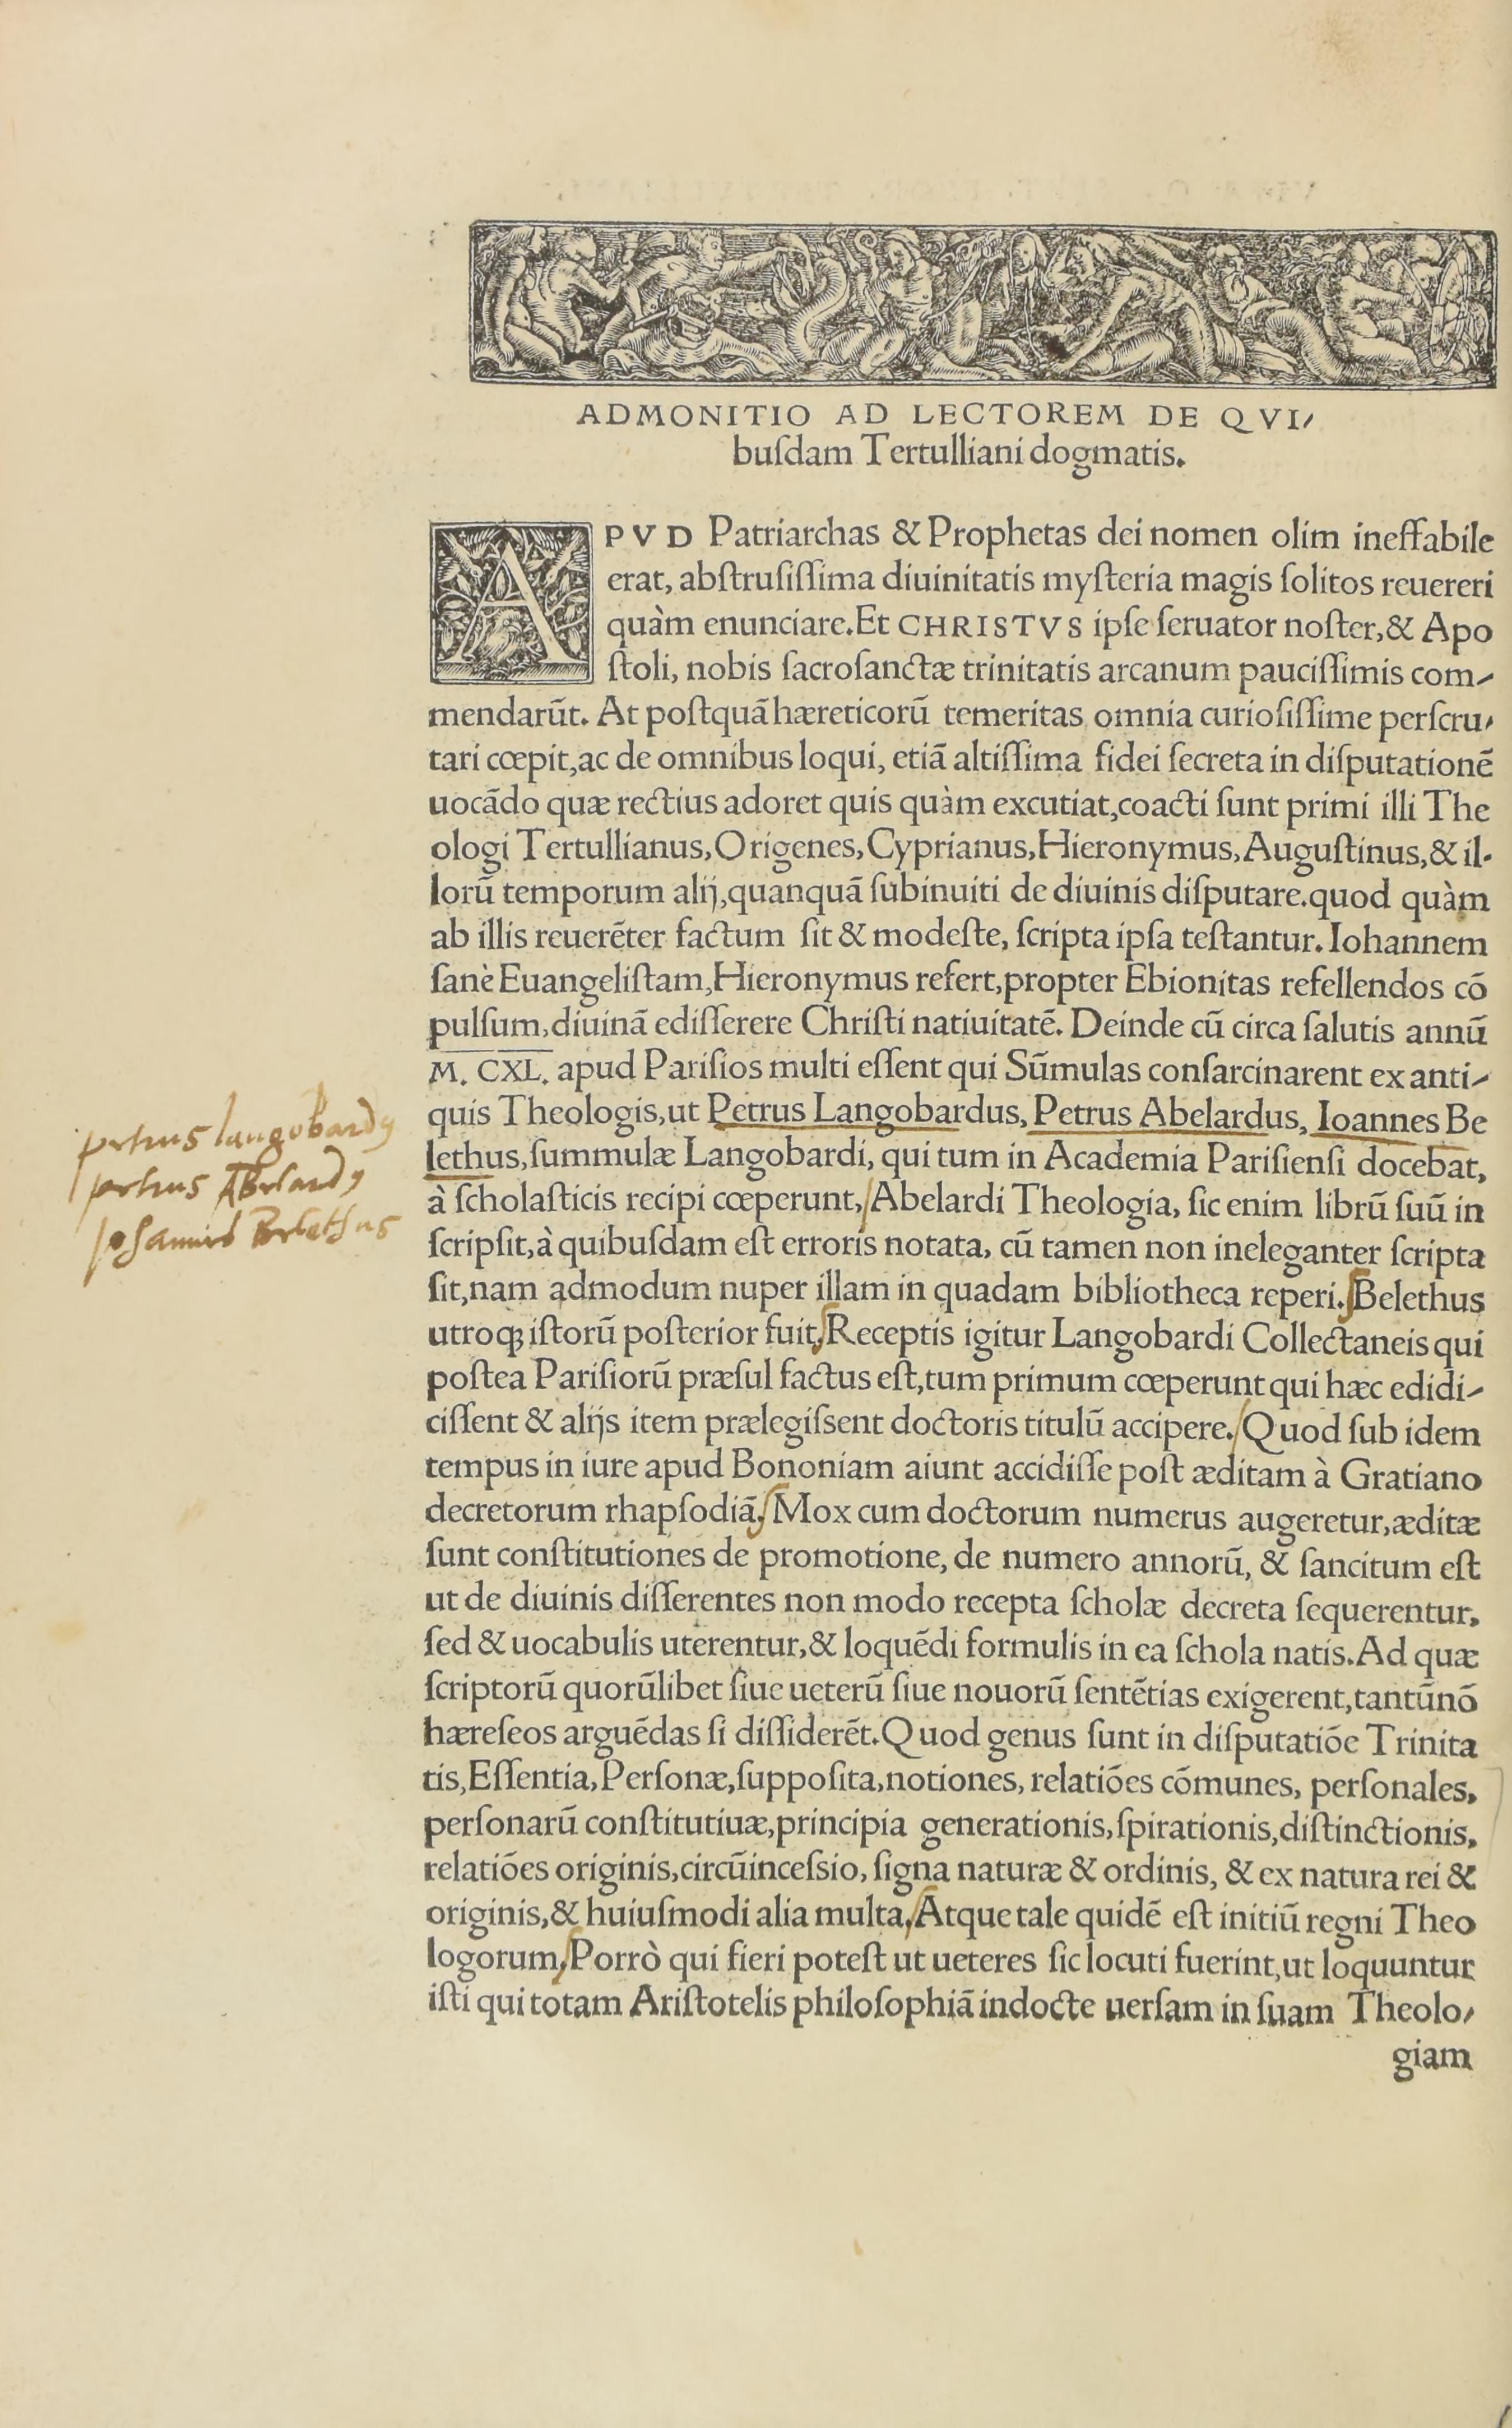 ADMONITIO AD LECTOREM DE QVI⸗
buſdam Tertulliani dogmatis.
APVD Patriarchas & Prophetas dei nomen olim ineffabile
erat, abſtruſiſſima diuinitatis myſteria magis ſolitos reuereri
quàm enunciare. Et CHRISTVS ipſe ſeruator noſter, & Apo
ſtoli, nobis ſacroſanctæ trinitatis arcanum pauciſſimis com⸗
mendarūt. At poſtquā hæreticorū temeritas omnia curioſiſſime perſcru⸗
tari cœpit, ac de omnibus loqui, etiā altiſſima fidei ſecreta in diſputationē
uocādo quæ rectius adoret quis quàm excutiat, coacti ſunt primi illi The
ologi Tertullianus, Origenes, Cyprianus, Hieronymus, Auguſtinus, & il-
lorū temporum alij, quanquā ſubinuiti de diuinis diſputare. quod quàm
ab illis reuerēter factum ſit & modeſte, ſcripta ipſa teſtantur. Iohannem
ſanè Euangeliſtam, Hieronymus refert, propter Ebionitas refellendos cō
pulſum, diuinā ediſſerere Chriſti natiuitatē. Deinde cū circa ſalutis annū
M. CXL. apud Pariſios multi eſſent qui Sūmulas conſarcinarent ex anti⸗
quis Theologis, ut Petrus Langobardus, Petrus Abelardus, Ioannes Be
lethus, ſummulæ Langobardi, qui tum in Academia Pariſienſi docebat,
à ſcholaſticis recipi cœperunt, Abelardi Theologia, ſic enim librū ſuū in
ſcripſit, à quibuſdam eſt erroris notata, cū tamen non ineleganter ſcripta
ſit, nam admodum nuper illam in quadam bibliotheca reperi. Belethus
utroqꝫ iſtorū poſterior fuit. Receptis igitur Langobardi Collectaneis qui
poſtea Pariſiorū præſul factus eſt, tum primum cœperunt qui hæc edidi⸗
ciſſent & alijs item prælegiſsent doctoris titulū accipere. Quod ſub idem
tempus in iure apud Bononiam aiunt accidiſſe poſt æditam à Gratiano
decretorum rhapſodiā. Mox cum doctorum numerus augeretur, æditæ
ſunt conſtitutiones de promotione, de numero annorū, & ſancitum eſt
ut de diuinis diſſerentes non modo recepta ſcholæ decreta ſequerentur,
ſed & uocabulis uterentur, & loquēdi formulis in ea ſchola natis. Ad quæ
ſcriptorū quorūlibet ſiue ueterū ſiue nouorū ſentētias exigerent, tantūnō
hæreſeos arguēdas ſi diſſiderēt. Quod genus ſunt in diſputatiōe Trinita
tis, Eſſentia, Perſonæ, ſuppoſita, notiones, relatiōes cōmunes, perſonales,
perſonarū conſtitutiuæ, principia generationis, ſpirationis, diſtinctionis,
relatiōes originis, circūinceſsio, ſigna naturæ & ordinis, & ex natura rei &
originis, & huiuſmodi alia multa. Atque tale quidē eſt initiū regni Theo
logorum. Porrò qui fieri poteſt ut ueteres ſic locuti fuerint, ut loquuntur
iſti qui totam Ariſtotelis philoſophiā indocte uerſam in ſuam Theolo⸗
giam
petrus langobardus
petrus Abelardus
Johannes Belethus